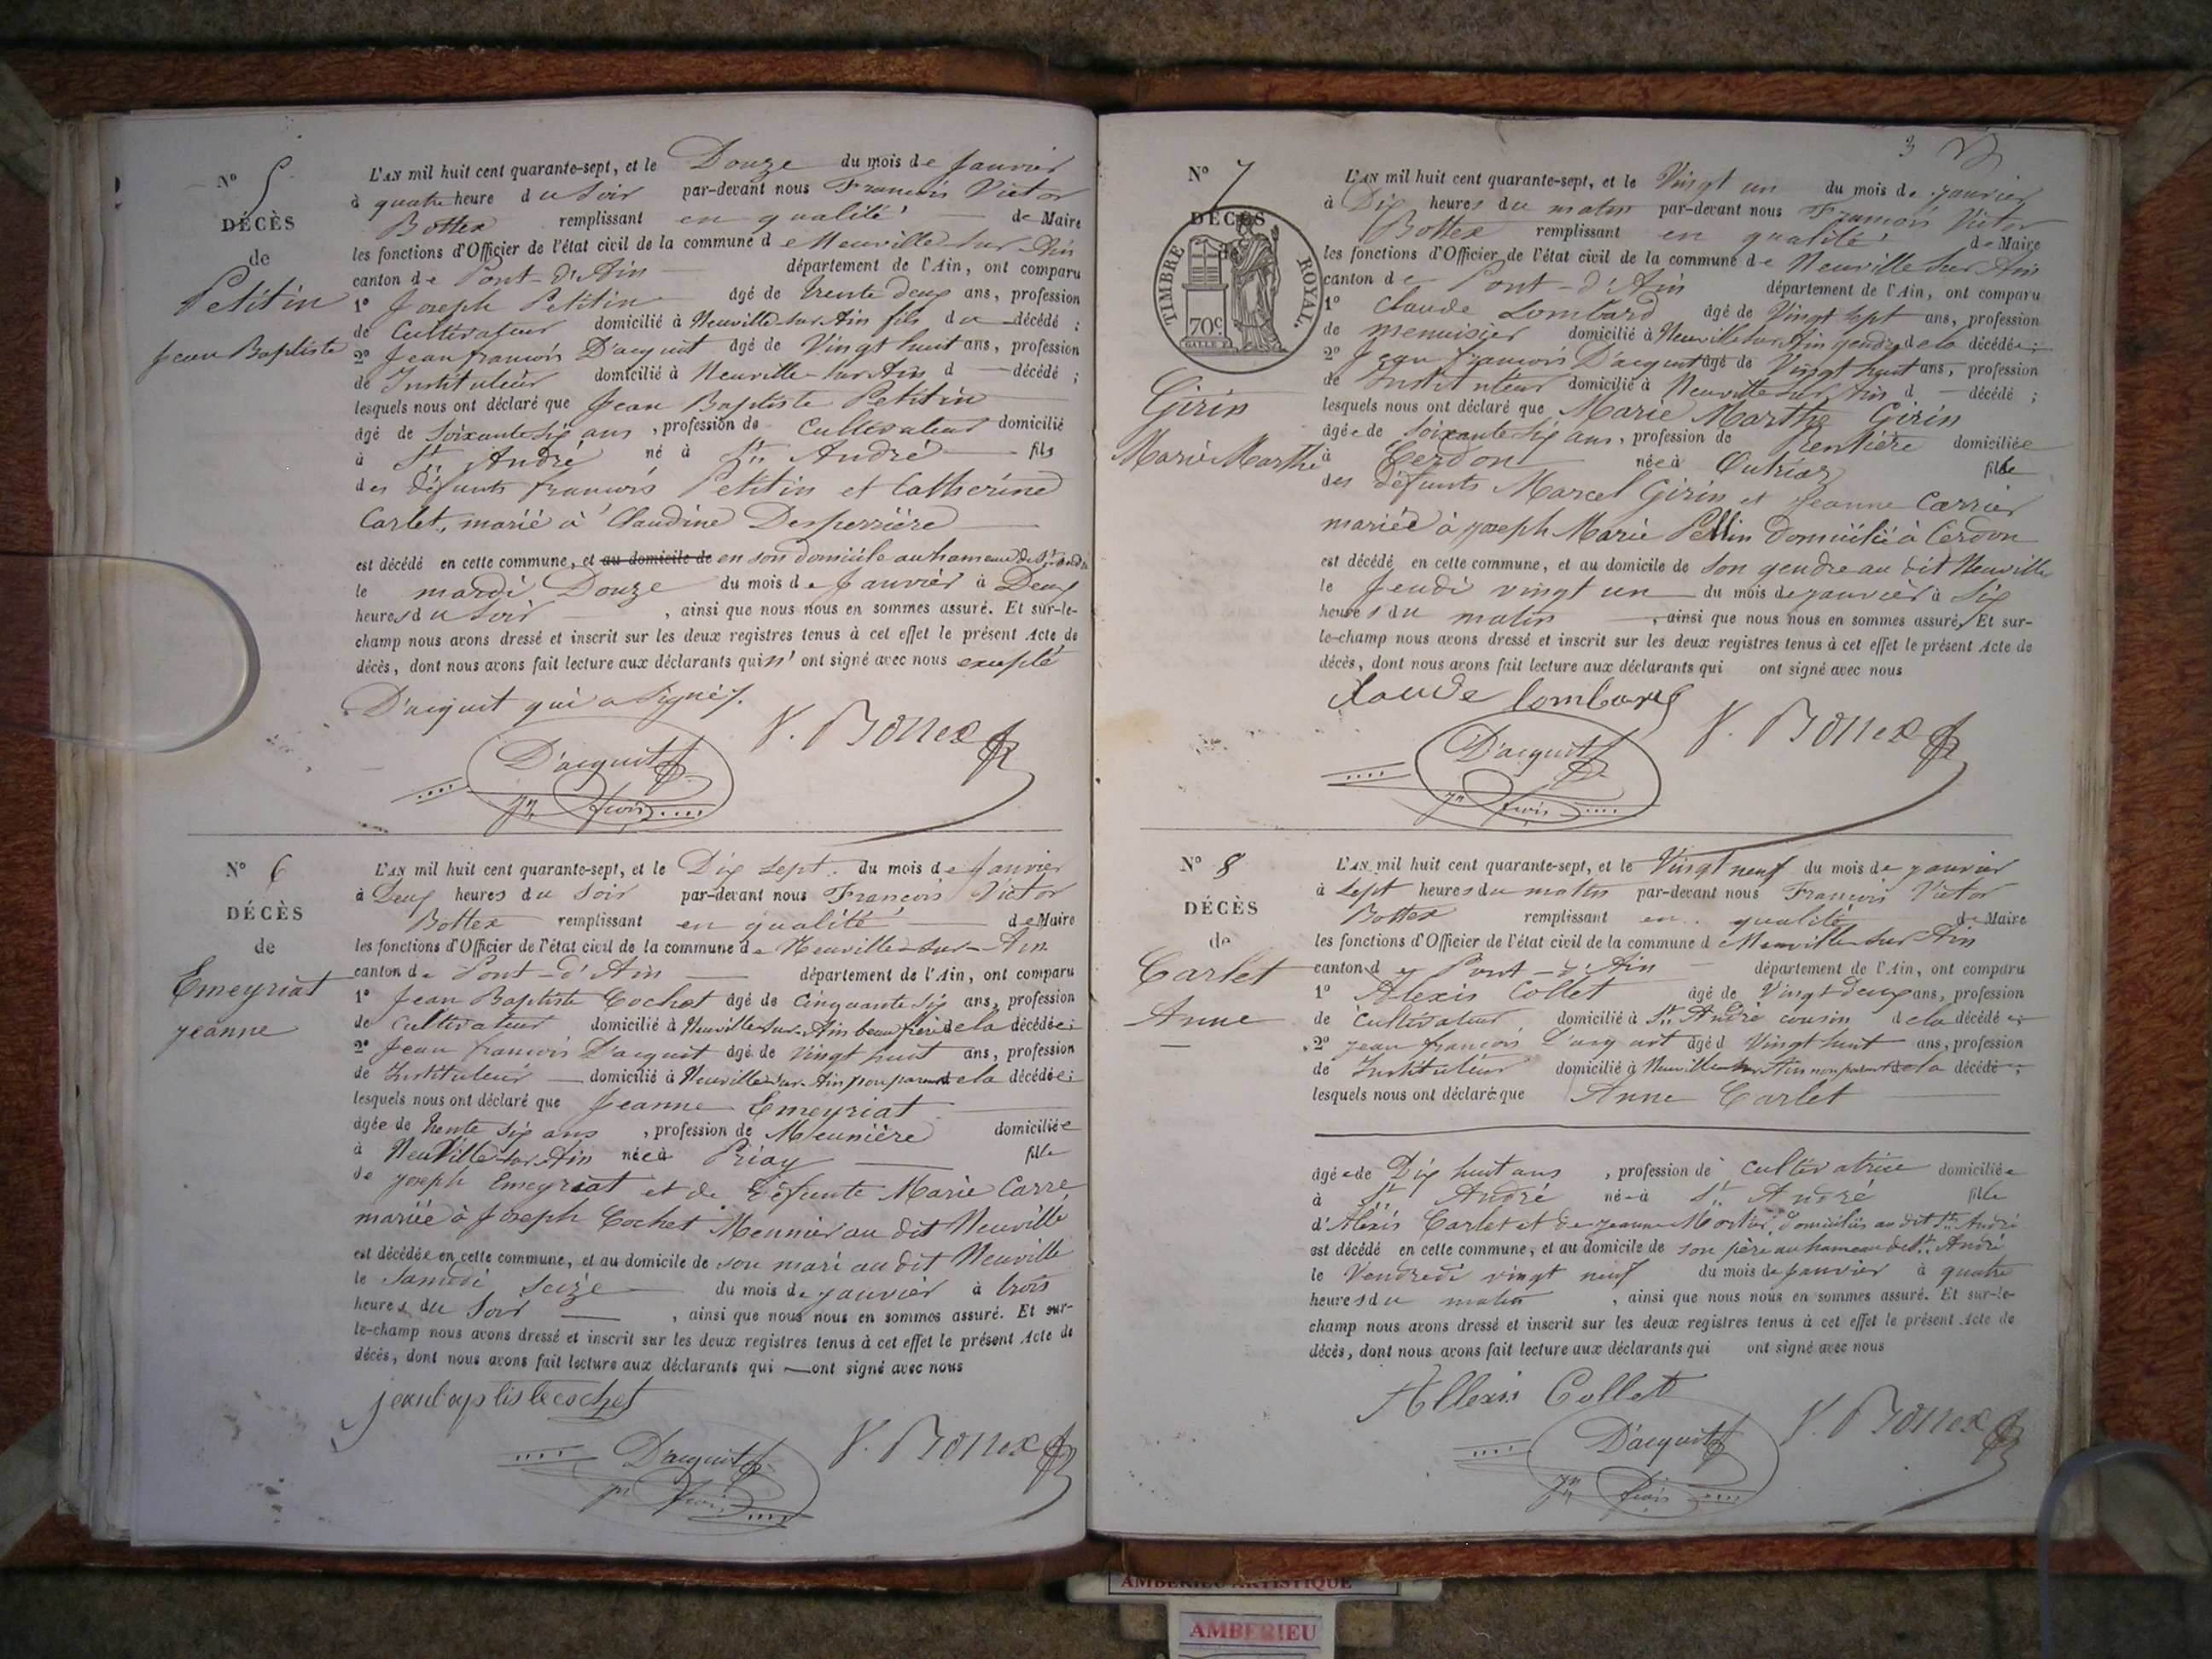 N° 5
DÉCÈS
de
Petitin
Jean Baptiste
L'AN mil huit cent quarante-sept, et le Douze du mois de Janvier
à quatre heure du Soir par-devant nous François Victor
Bottex remplissant en qualité de Maire
les fonctions d'Officier de l'état civil de la commune de Neuville sur Ain
canton de Pont-d'Ain département de l'Ain, ont comparu
1° Joseph Petitin âgé de trente deux ans, profession
de Cultivateur domicilié à Neuville sur Ain fils du décédé ;
2° Jean françois D'acquit âgé de Vingt huit ans, profession
de Instituteur domicilié à Neuville-sur Ain d décédé ;
lesquels nous ont déclaré que Jean Baptiste Petitin
âgé de soixante six ans, profession de Cultivateur domicilié
à St André né à St André fils
des défunts françois Petitin et Catherine
Carlet, marié à Claudine Desperrière
est décédé en cette commune, et au domicile de en son domicile au hameau de St André
le mardi Douze du mois de Janvier à Deux
heures du Soir , ainsi que nous nous en sommes assuré. Et sur-le-
champ nous avons dressé et inscrit sur les deux registres tenus à cet effet le présent Acte de
décès, dont nous avons fait lecture aux déclarants qui n'ont signé avec nous excepté
D'acquit qui a signé.
V. Bottex
D'acquit
Jn fcois
N° 6
DÉCÈS
de
Emeyriat
jeanne
L'AN mil huit cent quarante-sept, et le Dix sept du mois de Janvier
à Deux heures du Soir par-devant nous François Victor
Bottex remplissant en qualité de Maire
les fonctions d'Officier de l'état civil de la commune de Neuville-sur-Ain
canton de Pont-d'Ain département de l'Ain, ont comparu
1° Jean Baptiste Cochet âgé de Cinquante six ans, profession
de Cultivateur domicilié à Neuville sur Ain beau frère de la décédée ;
2° Jean françois D'acquit âgé de vingt huit ans, profession
de Instituteur domicilié à Neuville sur Ain non parent de la décédée ;
lesquels nous ont déclaré que Jeanne Emeyriat
âgée de trente six ans, profession de Meunière domiciliée
à Neuville sur Ain née à Priay fille
de joseph Emeyriat et de défunte Marie Carre
mariée à Joseph Cochet Meunier au dit Neuville
est décédée en cette commune, et au domicile de son mari au dit Neuville
le Samedi seize du mois de janvier à trois
heures du Soir , ainsi que nous nous en sommes assuré. Et sur-
le-champ nous avons dressé et inscrit sur les deux registres tenus à cet effet le présent Acte de
décès, dont nous avons fait lecture aux déclarants qui ont signé avec nous
jeanbaptistecochet
D'acquit
V. Bottex
Jn fcois
3
N° 7
DÉCÈS
de
TIMBRE ROYAL.
70c
Girin
Marie Marthe
L'AN mil huit cent quarante-sept, et le Vingt un du mois de janvier
à Dix heures du matin par-devant nous François Victor
Bottex remplissant en qualité de Maire
les fonctions d'Officier de l'état civil de la commune de Neuville sur Ain
canton de Pont-d'Ain département de l'Ain, ont comparu
1° Claude Lombard âgé de Vingt sept ans, profession
de menuisier domicilié à Neuville sur Ain gendre de la décédée ;
2° Jean françois D'acquit âgé de Vingt huit ans, profession
de Instituteur domicilié à Neuville sur Ain d décédé ;
lesquels nous ont déclaré que Marie Marthe Girin
âgée de soixante six ans, profession de Rentière domiciliée
à Cerdon née à Outriaz fille
des défunts Marcel Girin et Jeanne Carrier
mariée à joseph Marie Pellin domicilié à Cerdon
est décédé en cette commune, et au domicile de son gendre au dit Neuville
le Jeudi vingt un du mois de janvier à Six
heures du matin , ainsi que nous nous en sommes assuré. Et sur-
le-champ nous avons dressé et inscrit sur les deux registres tenus à cet effet le présent Acte de
décès, dont nous avons fait lecture aux déclarants qui ont signé avec nous
Claude lombard
V. Bottex
D'acquit
Jn fcois
N° 8
DÉCÈS
de
Carlet
Anne
L'AN mil huit cent quarante-sept, et le Vingt neuf du mois de janvier
à Sept heures du matin par-devant nous François Victor
Bottex remplissant en qualité de Maire
les fonctions d'Officier de l'état civil de la commune de Neuville sur Ain
canton de Pont-d'Ain département de l'Ain, ont comparu
1° Alexis Collet âgé de Vingt Deux ans, profession
de Cultivateur domicilié à St André cousin de la décédée ;
2° jean françois D'acquit âgé d Vingt huit ans, profession
de Instituteur domicilié à Neuville sur Ain non parent de la décédé ;
lesquels nous ont déclaré que Anne Carlet
âgée de Dix huit ans, profession de cultivatrice domiciliée
à St André née à St André fille
d'Alexis Carlet et de jeanne domiciliés au dit St André
est décédé en cette commune, et au domicile de son père au hameau de St André
le Vendredi vingt neuf du mois de Janvier à quatre
heures du matin , ainsi que nous nous en sommes assuré. Et sur-le-
champ nous avons dressé et inscrit sur les deux registres tenus à cet effet le présent Acte de
décès, dont nous avons fait lecture aux déclarants qui ont signé avec nous
Allexis Collet
D'acquit
V. Bottex
Jn fcois
AMBERIEU ARTISTIQUE
AMBERIEU